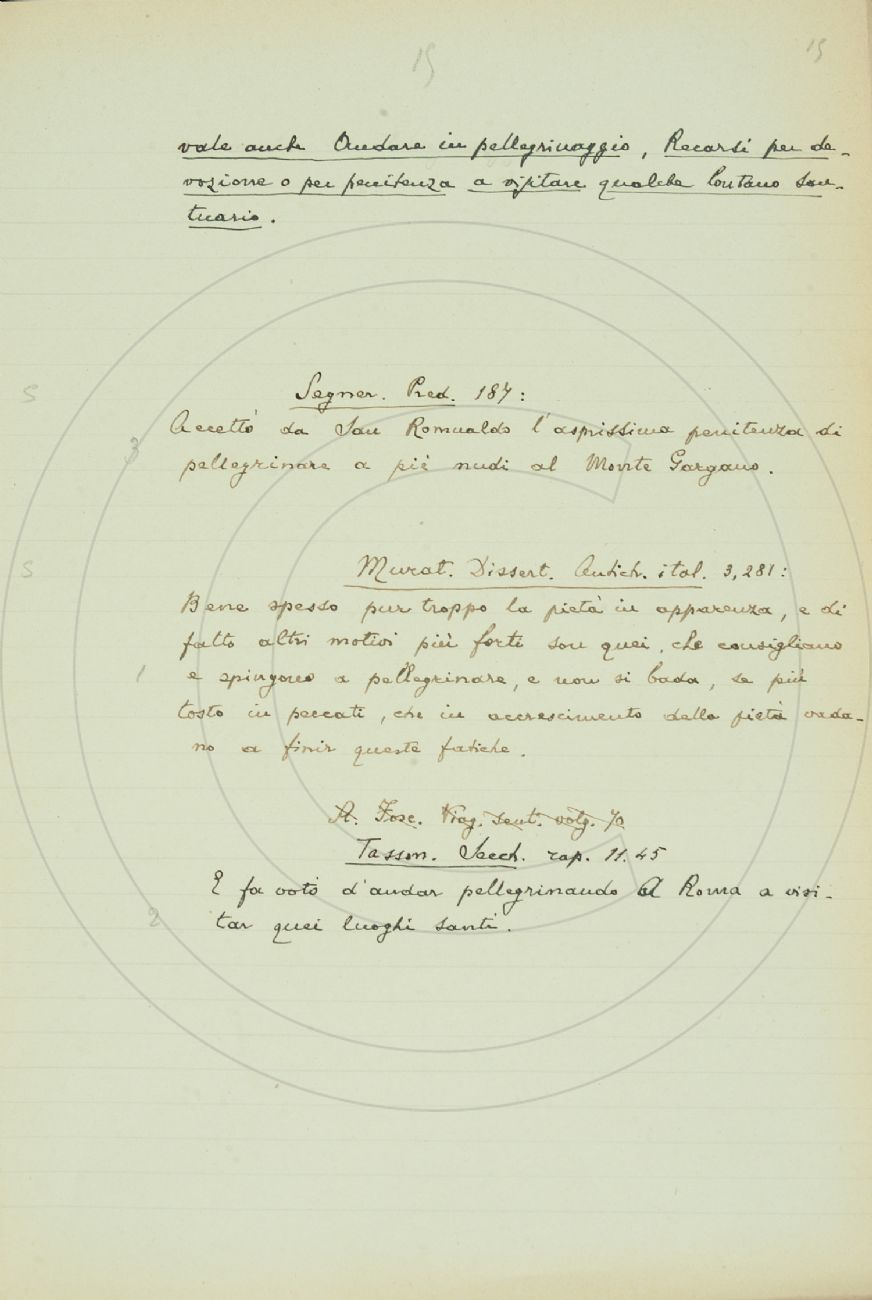 15
15
vale anche Andare in pellegrinaggio, Recarsi per de-
vozione o per penitenza a visitare qualche lontano San-
tuario.
S
Segner. Pred. 187:
3
Accettò da San Romualdo l'asprissima penitenza di
pellegrinare a piè nudi al Monte Gargano.
S
Murat. Dissert. Antich. ital. 3,281:
Bene spesso pur troppo la pietà in apparenza, e di
fatto altri motivi più forti son quei, che consigliano
1
e spingono a pellegrinare, e non si bada, se più
tosto in peccati, che in accrescimento della pietà vada-
no a finir queste fatiche.
Fosc. Viag. sent. volg. 70
Tasson. Secch. rap. 11.45
2
E fa voto d'andar pellegrinando A Roma a visi-
tar quei luoghi santi.